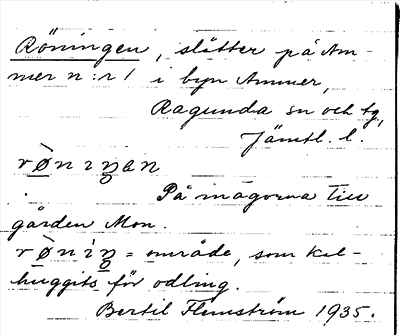 Röningen, slåtter på Am-
mer n:r 1 i byn Ammer,
Ragunda sn och tg,
Jämtl. l.
rø̀niŋan
På inägorna till
gården Mon.
rø̀nìŋ = område, som kal-
huggits för odling.
Bertil Flemström 1935.